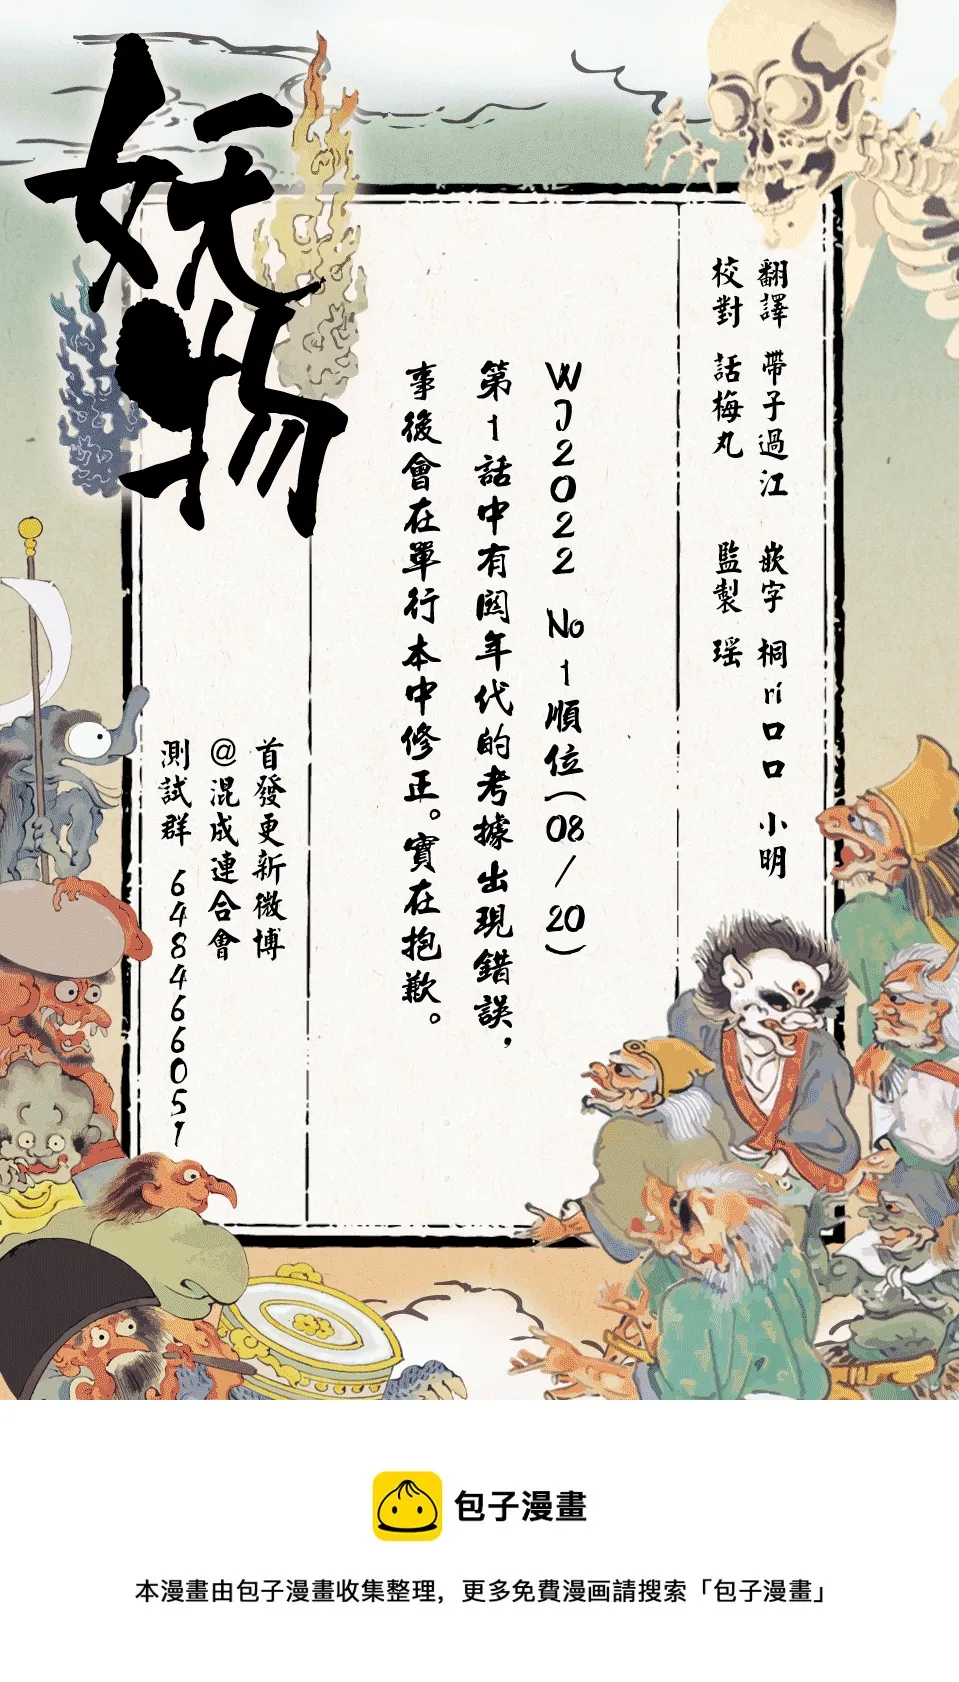 妖物
翻譯 帶子過江 嵌字 桐ri口口 小明
校對 話梅丸 監製 瑶
WJ2022 No1順位(08/20)
第1話中有関年代的考據出現錯誤，
事後會在單行本中修正。實在抱歉。
首發更新微博
@混成連合會
測試群 648466051
包子漫畫
本漫畫由包子漫畫收集整理，更多免費漫画請搜索「包子漫畫」